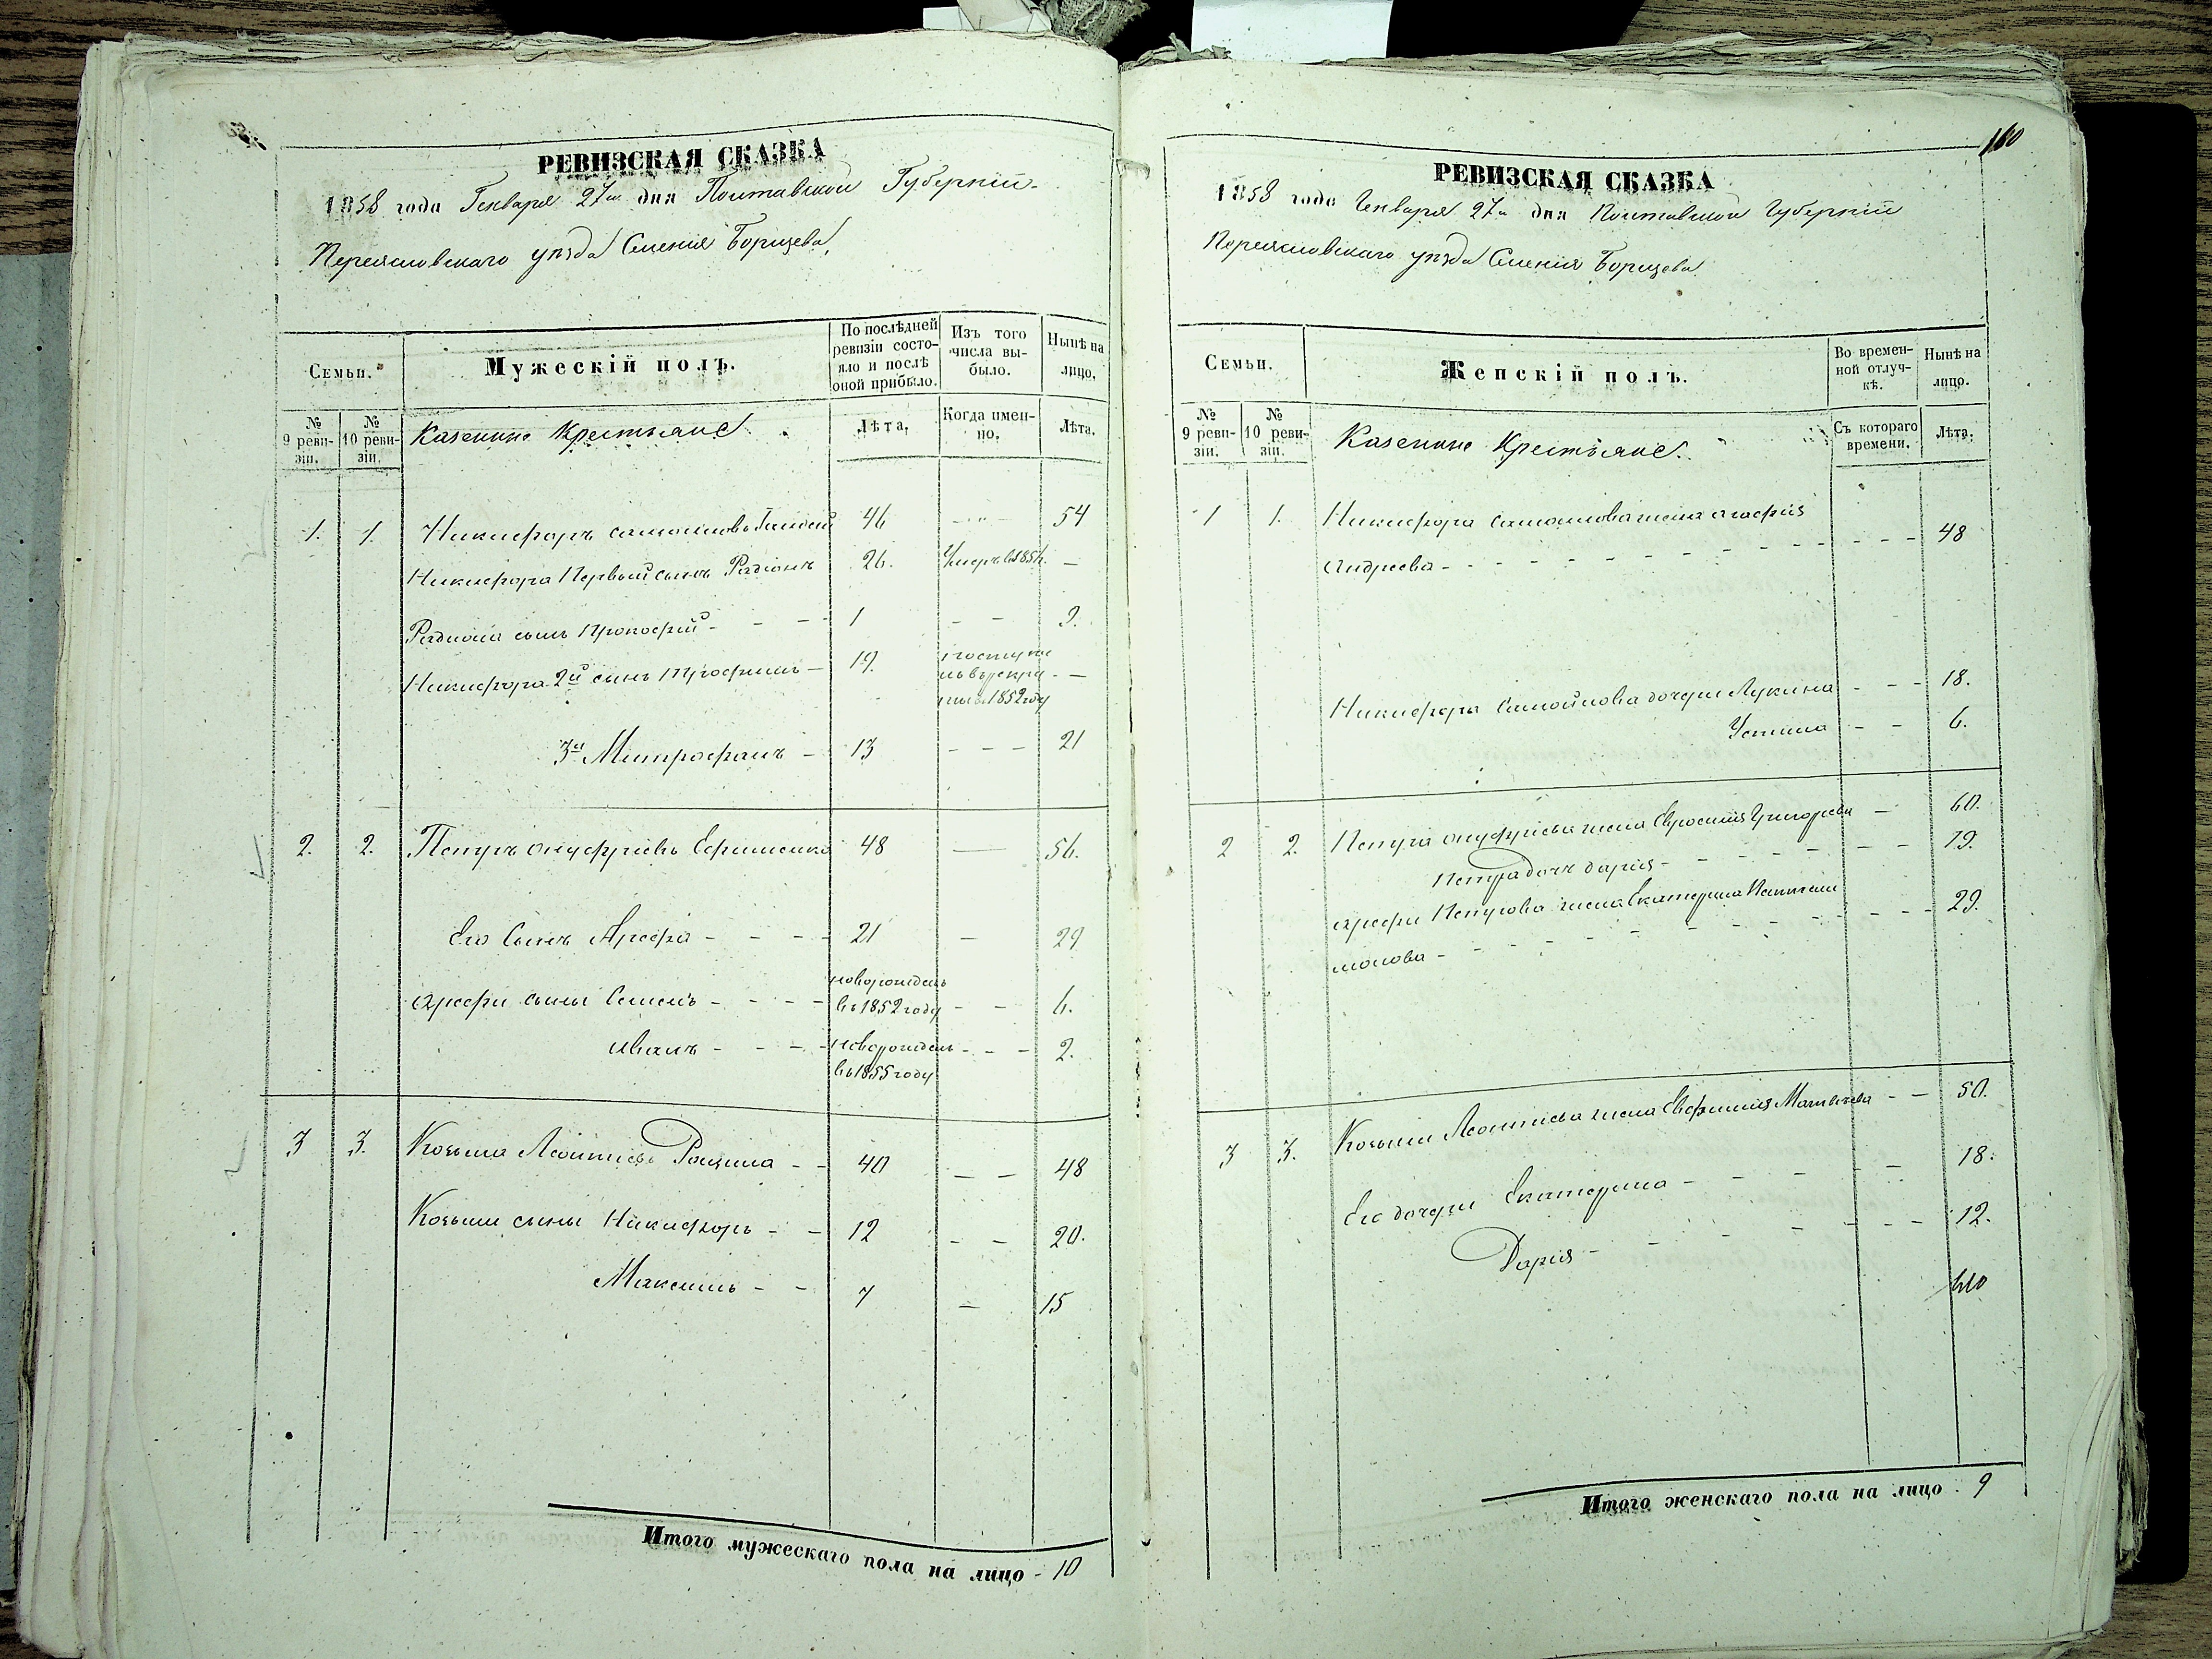 РЕВИЗСКАЯ СКАЗКА
1858 года Генваря 27го дня Полтавской Губерніи
Переясловскаго уѣзда Селенія Борщева
Семьи.
Мужескій полъ.
По послѣдней ревизіи состояло и послѣ оной прибыло.
Изъ того числа выбыло.
Нынѣ на лицо.
№ 9 ревизіи.
№ 10 ревизіи.
Казенные Крестьяне
Лѣта.
Когда именно.
Лѣта.
1. 1. Никифоръ Самойловъ 46 54
Никифора Первый сынъ Радіонъ 26. Умеръ въ 185 —
Радиона сынъ Прокофій - - - 1 - - 9.
Никифора 2й сынъ Трофимъ — 19. поступилъ въ рекруты въ 1852 году —
3й Митрофанъ - 13 - - - 21
2. 2. Петръ Онуфріевъ Ефименко 48 — 56.
Его Сынъ Арефа - - - - 21 — 29
Арефи сыны Семенъ - - - - новорожденъ въ 1852 году - - 6.
Иванъ - - - - новорожденъ въ 1855 году - - - 2.
3 3. Козьма Леонтіевъ - - 40 - - 48
Козьми сыны Никифоръ - - 12 - - 20.
Максимъ - - 7 — 15
Итого мужескаго пола на лицо - 10
160
РЕВИЗСКАЯ СКАЗКА
1858 года Генваря 27го дня Полтавской Губерніи
Переясловскаго уѣзда Селенія Борщева
Семьи.
Женскій полъ.
Во временной отлучкѣ.
Нынѣ на лицо.
№ 9 ревизіи.
№ 10 ревизіи.
Казенные Крестьяне.
Съ котораго времени.
Лѣта.
1 1. Никифора Самойлова жена Агафія
Андреева - - - - - - - - - - - 48
Никифора Самойлова дочери Лукина - - - 18.
Устина - - 6.
2 2. Петра Онуфріева жена Евросинія Григорьева — 60.
Петра дочь Дарія - - - - - - - 19.
Арефи Петрова жена Екатерина
- - - - - - - - - - 29.
3 3. Козьми Леонтіева жена Евфимія Матвѣева - - 50.
Его дочери Екатерина - - - - - 18.
Дарія - - - - - - - 12.
Итого женскаго пола на лицо . 9